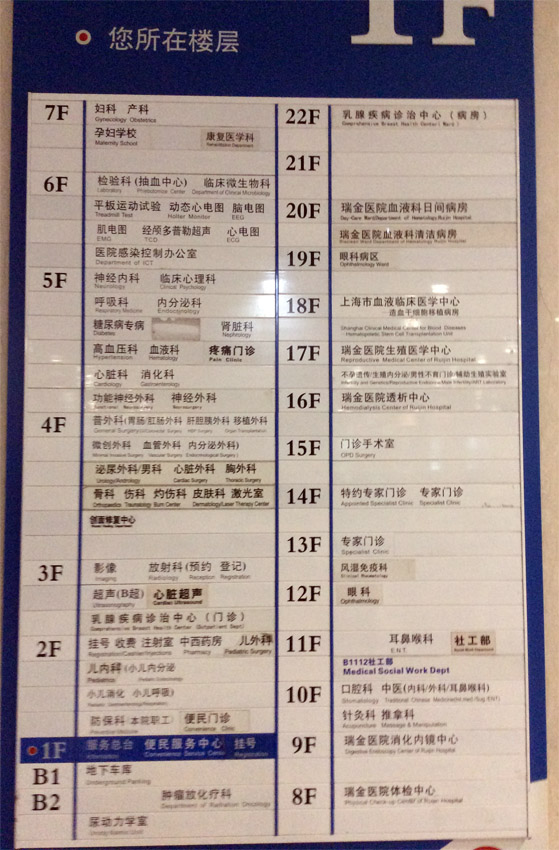 1F
您所在楼层
7F 妇科 产科
Gynecology Obstetrics
孕妇学校 康复医学科
Maternity School Rehabilitation Department
6F 检验科(抽血中心) 临床微生物科
Laboratory Phlebotomize Center Department of Clinical Microbiology
平板运动试验 动态心电图 脑电图
Treadmill Test Holter Monitor EEG
肌电图 经颅多普勒超声 心电图
EMG TCD ECG
医院感染控制办公室
Department of ICT
5F 神经内科 临床心理科
Neurology Clinical Psychology
呼吸科 内分泌科
Respiratory Medicine Endocrynology
糖尿病专病 肾脏科
Diabetes Nephrology
高血压科 血液科 疼痛门诊
Hypertension Hematology Pain Clinic
心脏科 消化科
Cardiology Gastroenterology
功能神经外科 神经外科
Functional Neurosurgery Neurosurgery
4F 普外科(胃肠/肛肠外科 肝胆胰外科 移植外科
微创外科 血管外科 内分泌外科)
泌尿外科/男科 心脏外科 胸外科
Urology/Andrology Cardiac Surgery Thoracic Surgery
骨科 伤科 灼伤科 皮肤科 激光室
Orthopaedics Traumatology Burn Center Dermatology/Laser Therapy Center
创面修复中心
3F 影像 放射科(预约 登记)
Imaging Radiology Reception Registration
超声(B超) 心脏超声
Ultrasonography Cardiac Ultrasound
乳腺疾病诊治中心(门诊)
Comprehensive Breast Health Center (Outpatient Dept)
2F 挂号 收费 注射室 中西药房 儿外科
Registration/Cashier/Injections Pharmacy Pediatric Surgery
儿内科(小儿内分泌
小儿消化 小儿呼吸)
防保科(本院职工) 便民门诊
Preventive Medicine Convenience Clinic
1F 服务总台 便民服务中心 挂号
Information Convenience Service Center Registration
B1 地下车库
Underground Parking
B2 肿瘤放化疗科
Department of Radiation Oncology
尿动力学室
22F 乳腺疾病诊治中心(病房)
Comprehensive Breast Health Center( Ward )
21F
20F 瑞金医院血液科日间病房
Day-Care Ward Department of Hematology, Ruijin Hospital
瑞金医院血液科清洁病房
19F 眼科病区
Ophthalmology Ward
18F 上海市血液临床医学中心
-造血干细胞移植病房
Shanghai Clinical Medical Center for Blood Diseases
-Hematopoietic Stem Cell Transplantation Unit
17F 瑞金医院生殖医学中心
Reproductive Medical Center of Ruijin Hospital
不孕遗传/生殖内分泌/男性不育门诊/辅助生殖实验室
16F 瑞金医院透析中心
Hemodialysis Center of Ruijin Hospital
15F 门诊手术室
OPD Surgery
14F 特约专家门诊 专家门诊
Appointed Specialist Clinic Specialist Clinic
13F 专家门诊
Specialist Clinic
风湿免疫科
Clinical Rheumatology
12F 眼科
Ophthalmology
11F 耳鼻喉科 社工部
E.N.T.
B1112社工部
Medical Social Work Dept
10F 口腔科 中医(内科/外科/耳鼻喉科)
针灸科 推拿科
Acupuncture Massage & Manipulation
9F 瑞金医院消化内镜中心
Digestive Endoscopy Center of Ruijin Hospital
8F 瑞金医院体检中心
Physical Check-up Center of Ruijin Hospital